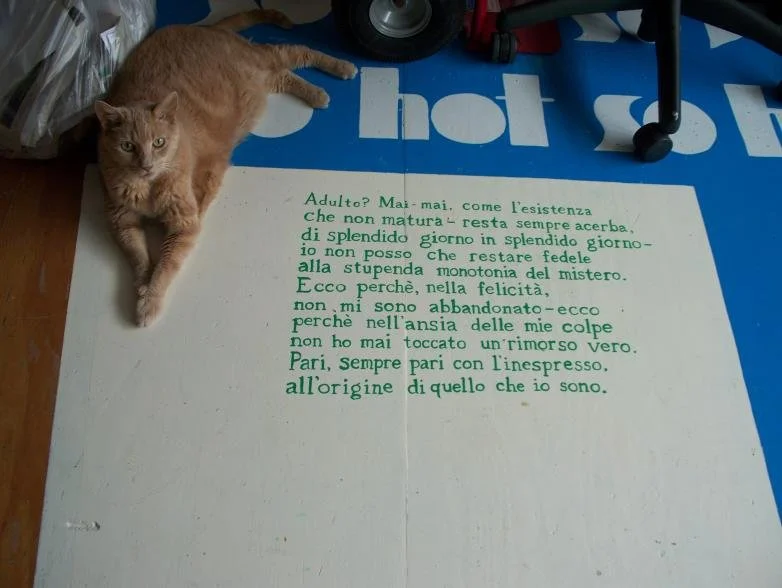 hot so
Adulto? Mai-mai, come l'esistenza
che non matura - resta sempre acerba,
di splendido giorno in splendido giorno-
io non posso che restare fedele
alla stupenda monotonia del mistero.
Ecco perchè, nella felicità,
non mi sono abbandonato-ecco
perchè nell'ansia delle mie colpe
non ho mai toccato un rimorso vero.
Pari, sempre pari con l'inespresso,
all'origine di quello che io sono.